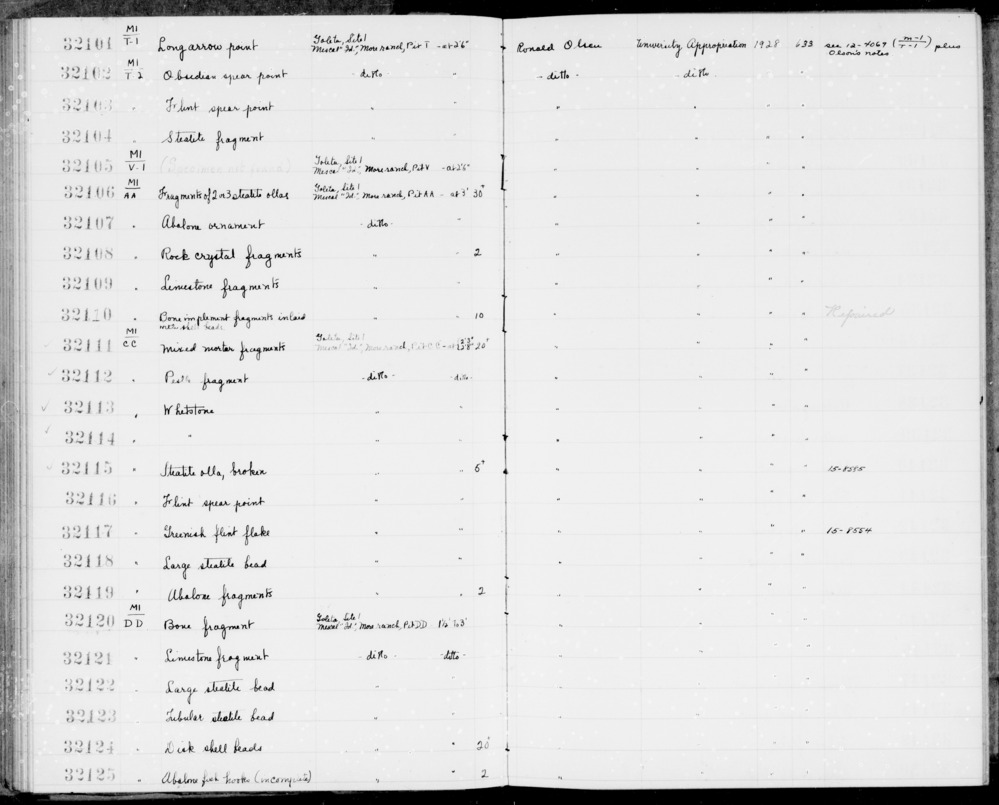 32101 M1/T-1 Long arrow point Goleta, Site 1 Mescal "Id.", More ranch, Pit T - at 2'6" Ronald Olsen University Appropriation 1928 633 see 12-4067 (m-1/T-1) plus Olson's notes
32102 M1/T-2 Obsidian spear point - ditto - " - ditto - ditto " "
32103 " Flint spear point " " " " " "
32104 " Steatite fragment " " " " " "
32105 M1/V-1 (Specimen not found) Goleta, Site 1 Mescal "Id.", More ranch, Pit V - at 2'6" " " " "
32106 M1/AA Fragments of 2 or 3 steatite ollas Goleta, Site 1 Mescal "Id.", More ranch, Pit AA - at 3' 30+ " " " "
32107 " Abalone ornament - ditto - " " " " "
32108 " Rock crystal fragments " " 2 " " " "
32109 " Limestone fragments " " " " " "
32110 " Bone implement fragments inlaid with shell beads " " 10 " " " " Repaired
32111 M1/CC Mixed mortar fragments Goleta, Site 1 Mescal "Id.", More ranch, Pit CC - at 20+ " " " "
32112 " Pestle fragment - ditto - - ditto - " " " "
32113 " Whetstone " " " " " "
32114 " " " " " " " "
32115 " Steatite olla, broken " " 5+ " " " " 15-8555
32116 " Flint spear point " " " " " "
32117 " Greenish flint flake " " " " " " 15-8554
32118 " Large steatite bead " " " " " "
32119 " Abalone fragments " " 2 " " " "
32120 M1/DD Bone fragment Goleta, Site 1 Mescal "Id.", More ranch, Pit DD 1½' to 3' " " " "
32121 " Limestone fragment - ditto - - ditto - " " " "
32122 " Large steatite bead " " " " " "
32123 " Tubular steatite bead " " " " " "
32124 " Disk shell beads " " 20+ " " " "
32125 " Abalone fish hooks (incomplete) " " 2 " " " "